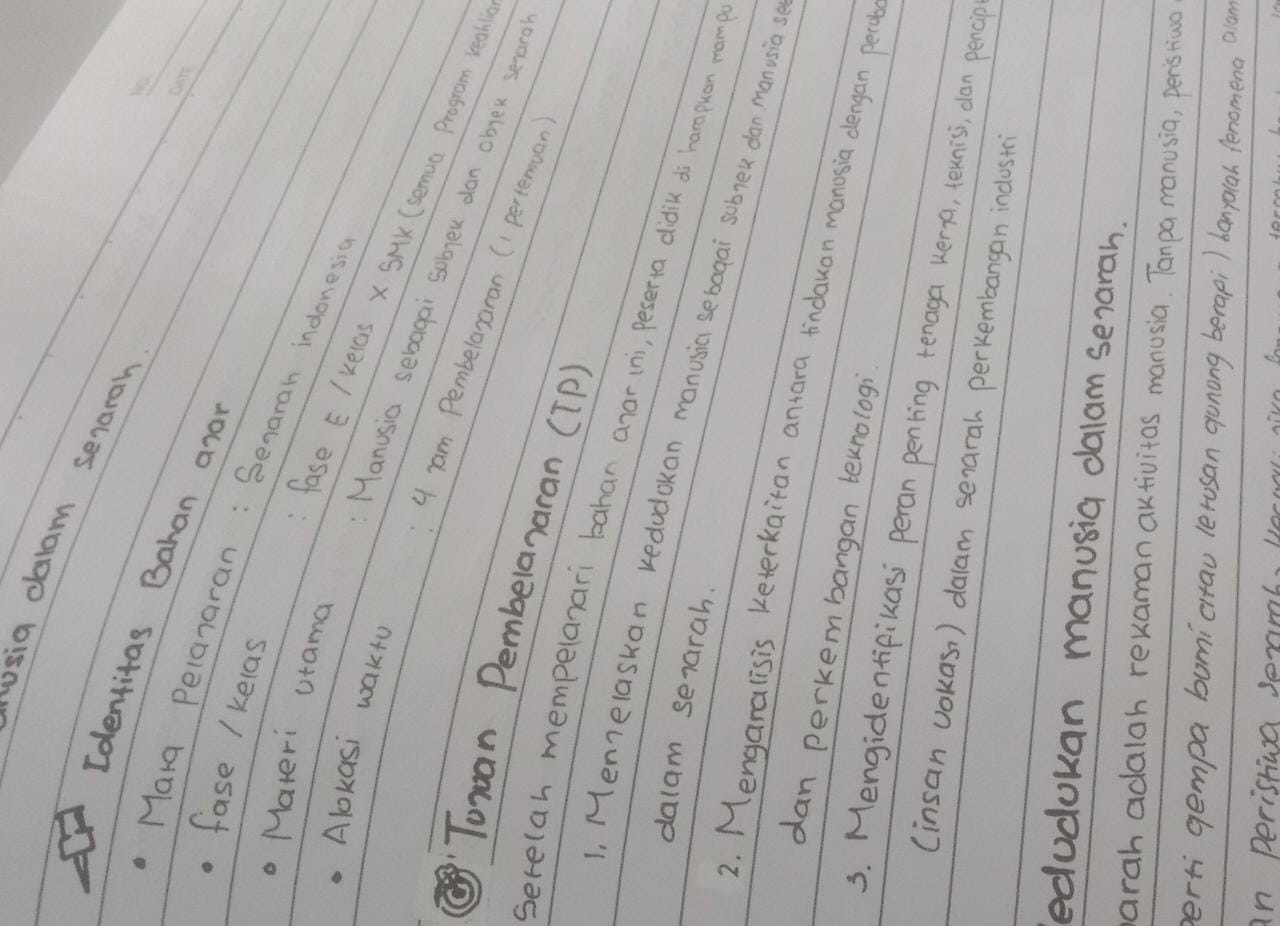 No
Date
dalam sejarah.
Identitas Bahan ajar
• Mata Pelajaran : Sejarah indonesia
• fase / kelas : fase E / kelas X SMK (semua Program keahlian
• Materi utama : Manusia sebagai subjek dan objek sejarah
• Alokasi waktu : 4 jam Pembelajaran (1 pertemuan)
Tujuan Pembelajaran (TP)
Setelah mempelajari bahan ajar ini, Peserta didik di harapkan mampu
1. Menjelaskan kedudukan manusia sebagai subjek dan manusia
dalam sejarah.
2. Menganalisis keterkaitan antara tindakan manusia dengan
dan perkembangan teknologi.
3. Mengidentifikasi peran penting tenaga kerja, teknisi, dan
(insan vokasi) dalam sejarah perkembangan industri
manusia dalam sejarah.
adalah rekaman aktivitas manusia. Tanpa manusia, peristiwa
gempa bumi atau letusan gunung berapi) hanyalah fenomena alam
peristiwa sejarah